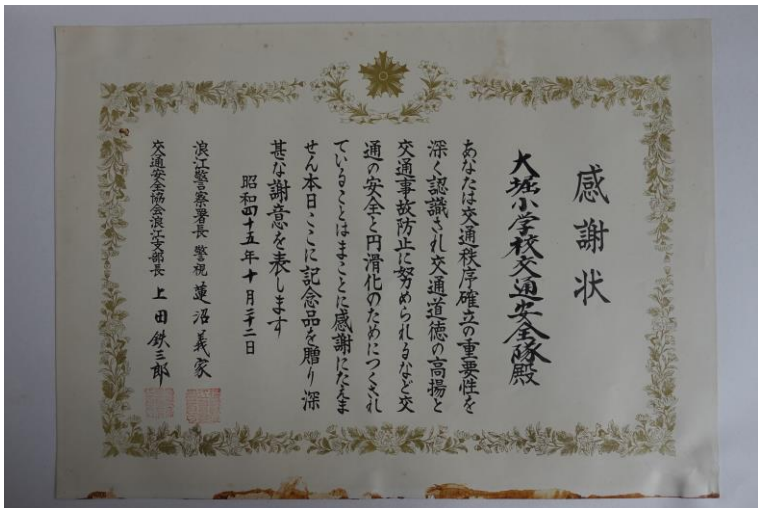 感謝状
大堀小学校交通安全隊殿
あなたは交通秩序確立の重要性を
深く認識され交通道徳の高揚と
交通事故防止に努められるなど交
通の安全と円滑化のためにつくされ
ていることはまことに感謝にたえま
せん本日ここに記念品を贈り深
甚な謝意を表します
昭和四十五年十月二十二日
浪江警察署長 警視 蓮沼義家
交通安全協会浪江支部長 上田鉄三郎